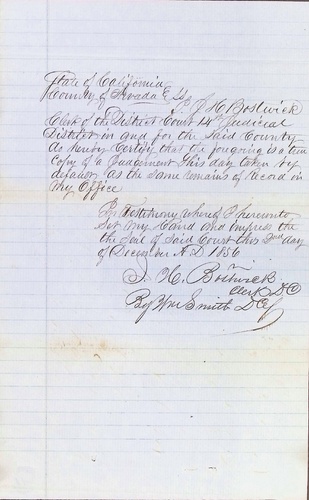 State of California
County of Nevada } SS I J. H. Bostwick
Clerk of the District Court 14th Judicial
District in and for the Said County
do hereby Certify that the forgoing is a true
Copy of a Judgement This day taken by
default as the same remains of record in
My Office
In Testimony whereof I hereunto
Set my hand and impress the
the Seal of Said Court this 2nd day
of December A D 1856
J. H. Bostwick
Clerk D C
By Wm Smith D C